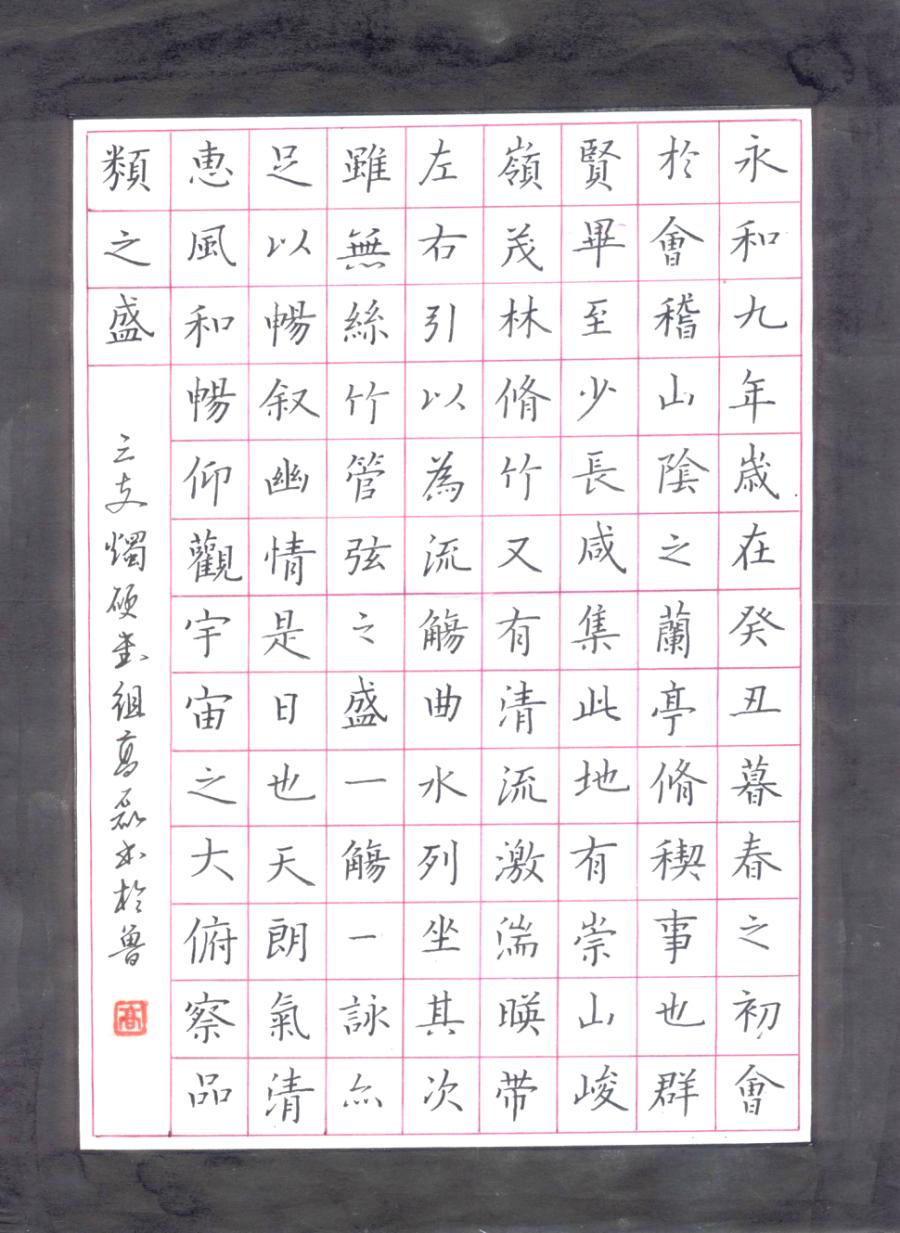 永和九年歲在癸丑暮春之初會
於會稽山陰之蘭亭脩稧事也群
賢畢至少長咸集此地有崇山峻
嶺茂林脩竹又有清流激湍暎帶
左右引以為流觴曲水列坐其次
雖無絲竹管弦之盛一觴一詠亦
足以暢叙幽情是日也天朗氣清
惠風和暢仰觀宇宙之大俯察品
類之盛
三支燭硬書組高磊書於魯
高